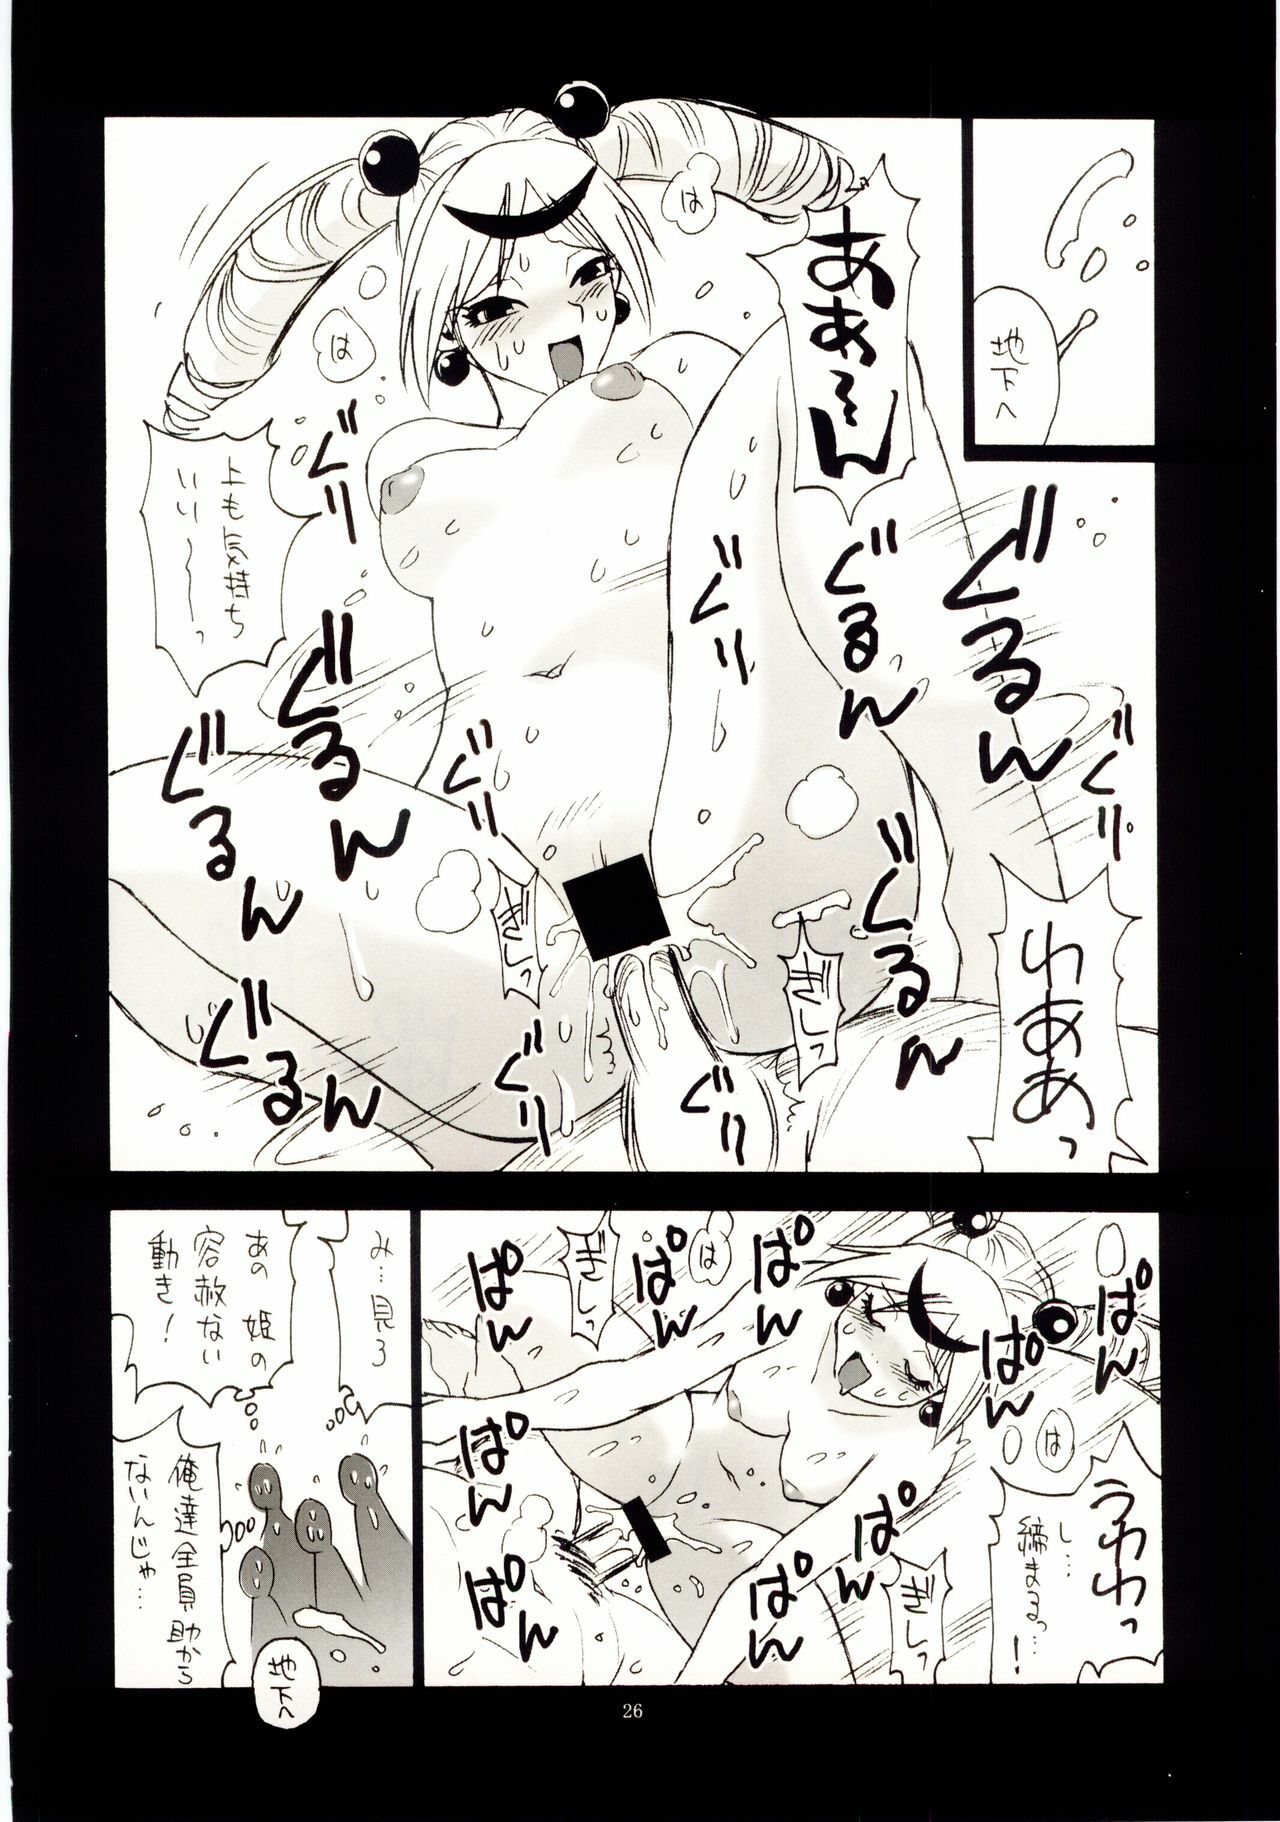 地下へ
ああ〜ん
は
は
上も気持ち
いい〜〜っ
ぐり
ぐり
ぐるん
ぐるん
ぐり
ぐるん
ぐるん
ぐり
ぐるん
ぎしっ
ぎしっ
ぐるん
ぐり
ぐり
わああっ
ぱん
ぱん
は
うわわっ
し…
締まるっ…
!
ぱん
ぱん
ぱん
は
ぎしっ
ぱん
ぱん
ぱん
ぱん
ぱん
ぎしっ
み…見ろ
あの姫の
容赦ない
動き!
俺達全員助から
ないんじゃ…
地下へ
26